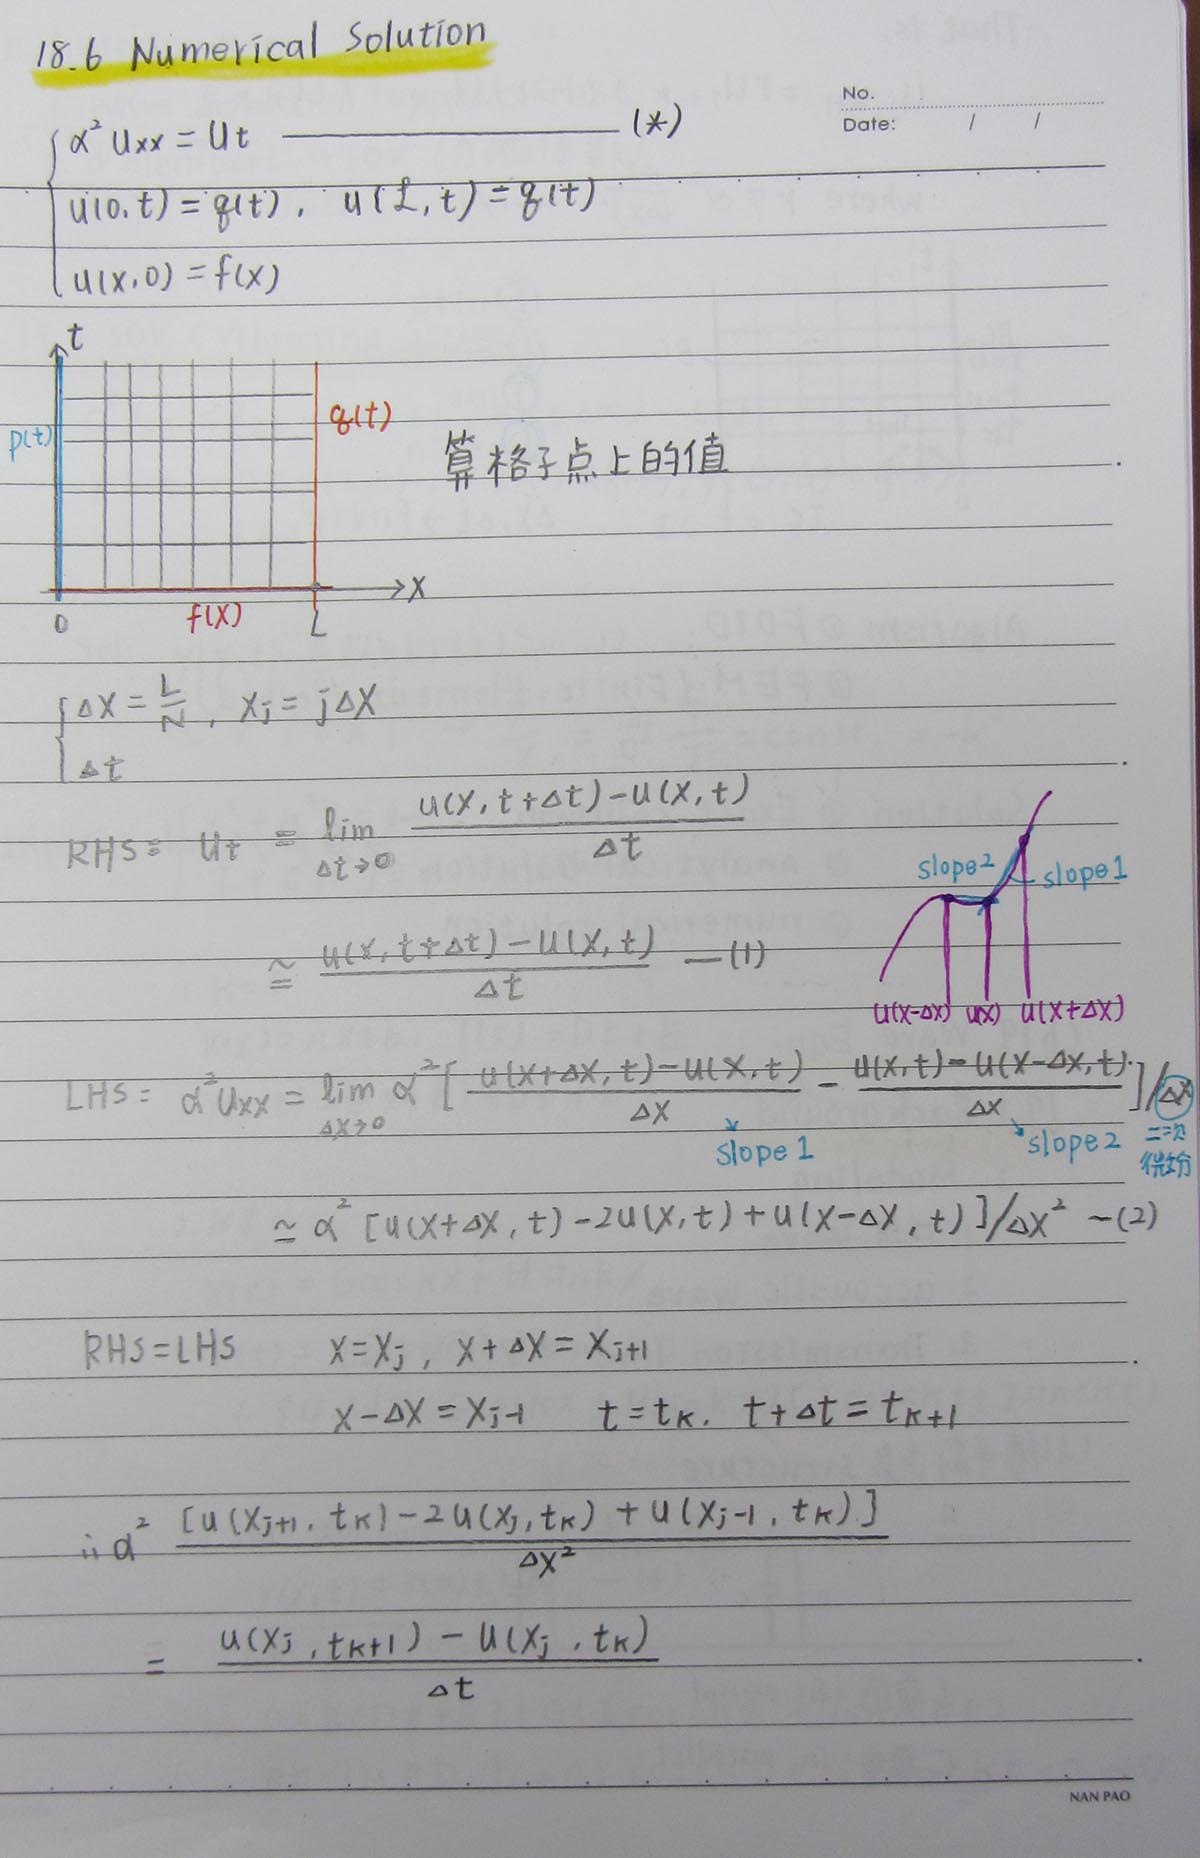 18.6 Numerical Solution
No.
Date: / /
α² Uxx = Ut ——— (*)
u(0,t) = q(t), u(L,t) = q(t)
u(x,0) = f(x)
t
p(t)
q(t)
算格子点上的值
x
0
f(x)
L
Δx = L/N, xj = jΔx
Δt
RHS = Ut = lim Δt→0 (u(x,t+Δt) - u(x,t))/Δt
slope2
slope1
≅ (u(x,t+Δt) - u(x,t))/Δt —(1)
u(x-Δx) u(x) u(x+Δx)
LHS = α²Uxx = lim Δx→0 α² [ (u(x+Δx,t) - u(x,t))/Δx - (u(x,t) - u(x-Δx,t))/Δx ]/Δx
slope1
slope2
二次
微分
≃ α² [u(x+Δx,t) - 2u(x,t) + u(x-Δx,t)]/Δx² —(2)
RHS = LHS x = xj, x+Δx = xj+1
x-Δx = xj-1 t = tk, t+Δt = tk+1
∴ α² [u(xj+1,tk) - 2u(xj,tk) + u(xj-1,tk)]/Δx²
= (u(xj,tk+1) - u(xj,tk))/Δt
NAN PAO